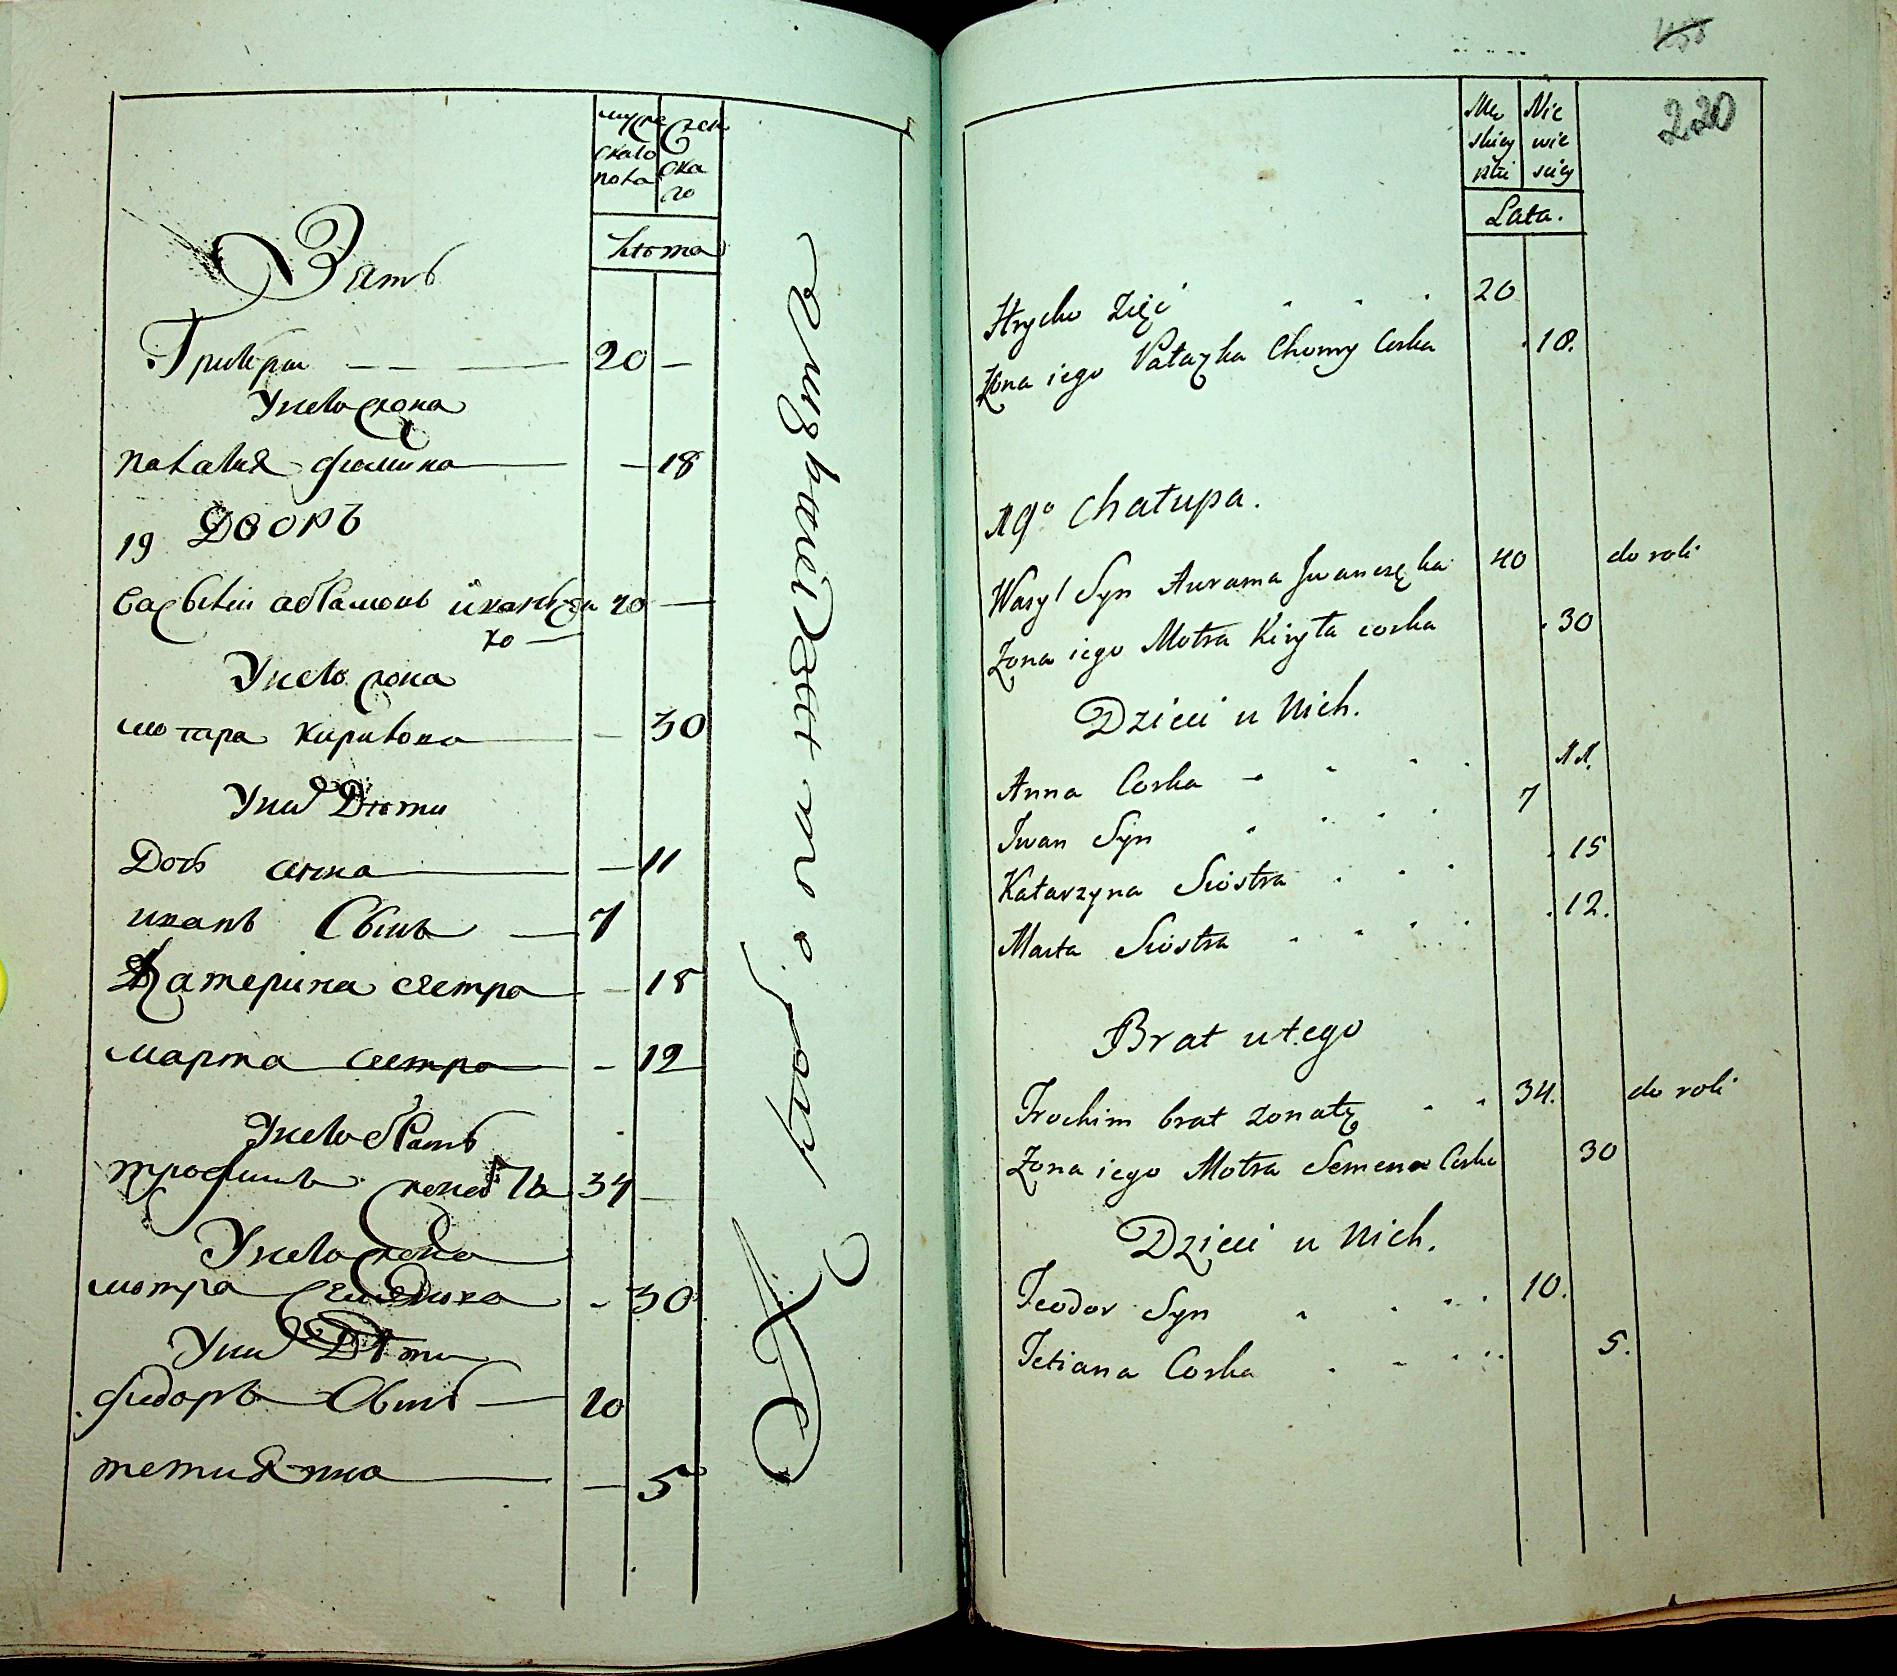 мужескаго пола
женскаго
лѣта
Зять
Григори — — — 20 —
У него жона
палагия фомина — — 18
19 ДВОРЪ
Василий абрамовъ иванчен 40 —
ко —
У него жона
мотара кирилова — — 30
У них Дѣти
Дочь анна — — 11
иванъ Сынъ — 7
Катерина сестра — — 15
марта сестра — — 12
У него братъ
трофимъ 34 —
У него жона
мотра — 30
У них Дѣти
фиодоръ Сынъ — 10
тетиянна — — 5
220
Męskiey płci
Niewieściey
Lata.
Hrycko Zięć . . . 20
Żona iego Pałazka Chomy Corka . 18.
19º Chałupa.
Wasyl Syn Awrama Iwanczęka 40 do roli
Żona iego Motra Kiryła corka . 30
Dzieci u Nich.
Anna Corka - . . . 11.
Iwan Syn . . . . 7
Katarzyna Siostra . . . . 15
Marta Siostra . . . . . 12.
Brat u tego
Trochim brat zonaty . . 34. do roli
Żona iego Motra Semena Corka 30
Dzieci u Nich.
Teodor Syn . . . . 10.
Tetiana Corka . . . . 5.